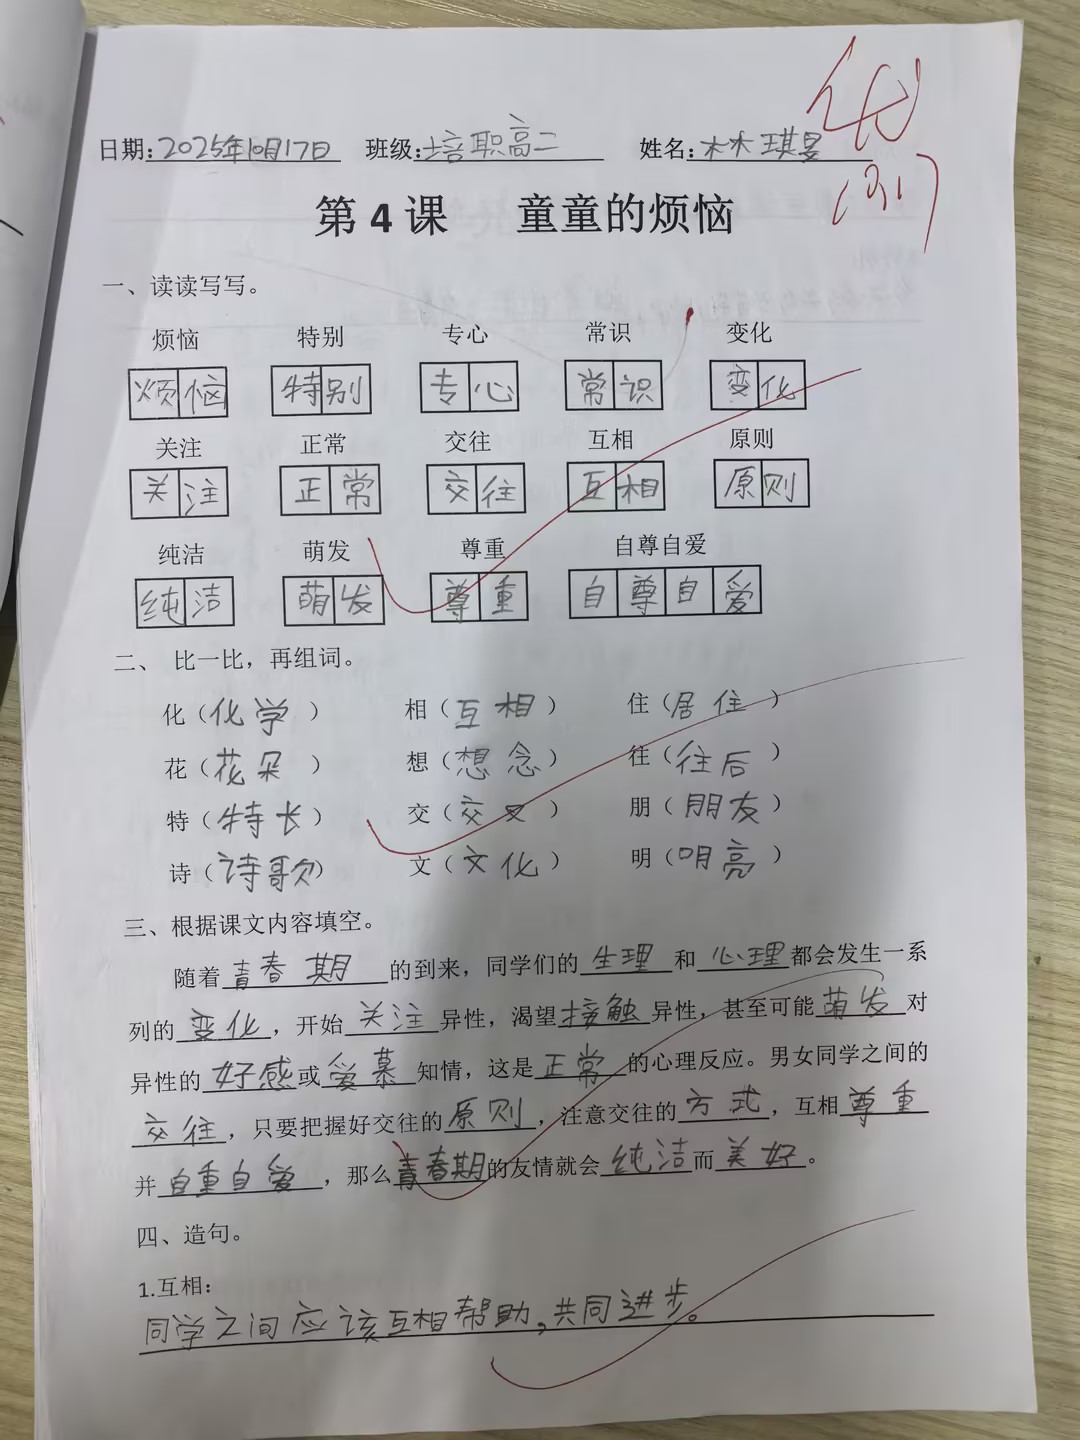 优
日期:2025年10月17日 班级:培职高二 姓名:林琪旻
第 4 课 童童的烦恼
一、读读写写。
烦恼 特别 专心 常识 变化
烦恼 特别 专心 常识 变化
关注 正常 交往 互相 原则
关注 正常 交往 互相 原则
纯洁 萌发 尊重 自尊自爱
纯洁 萌发 尊重 自尊自爱
二、 比一比，再组词。
化（化学） 相（互相） 住（居住）
花（花朵） 想（想念） 往（往后）
特（特长） 交（交叉） 朋（朋友）
诗（诗歌） 文（文化） 明（明亮）
三、根据课文内容填空。
随着青春期的到来，同学们的生理和心理都会发生一系
列的变化，开始关注异性，渴望接触异性，甚至可能萌发对
异性的好感或爱慕知情，这是正常的心理反应。男女同学之间的
交往，只要把握好交往的原则，注意交往的方式，互相尊重
并自重自爱，那么青春期的友情就会纯洁而美好。
四、造句。
1.互相：
同学之间应该互相帮助,共同进步。